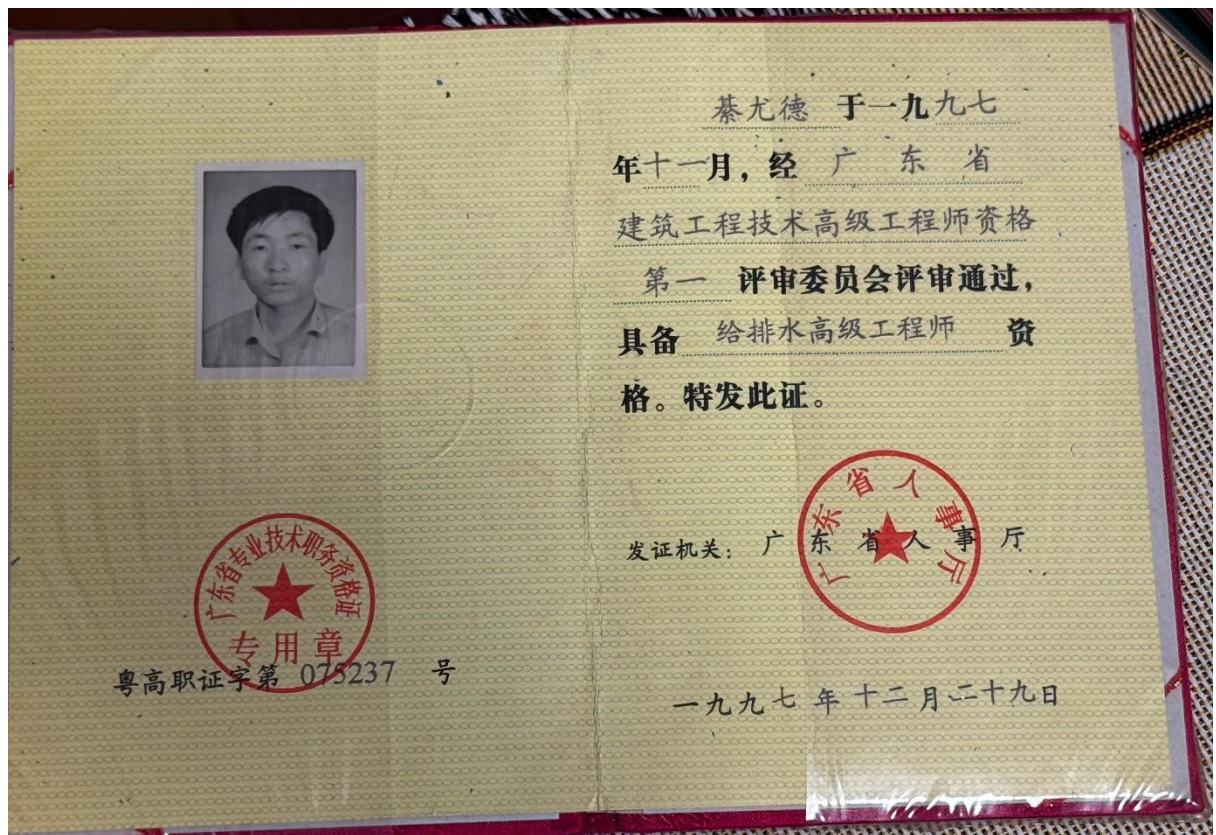 广东省专业技术职务资格证
专用章
粤高职证字第 075237 号
綦尤德 于一九九七
年十一月，经 广东省
建筑工程技术高级工程师资格
第一 评审委员会评审通过，
具备 给排水高级工程师 资
格。特发此证。
广东省人事厅
发证机关：广东省人事厅
一九九七年十二月二十九日